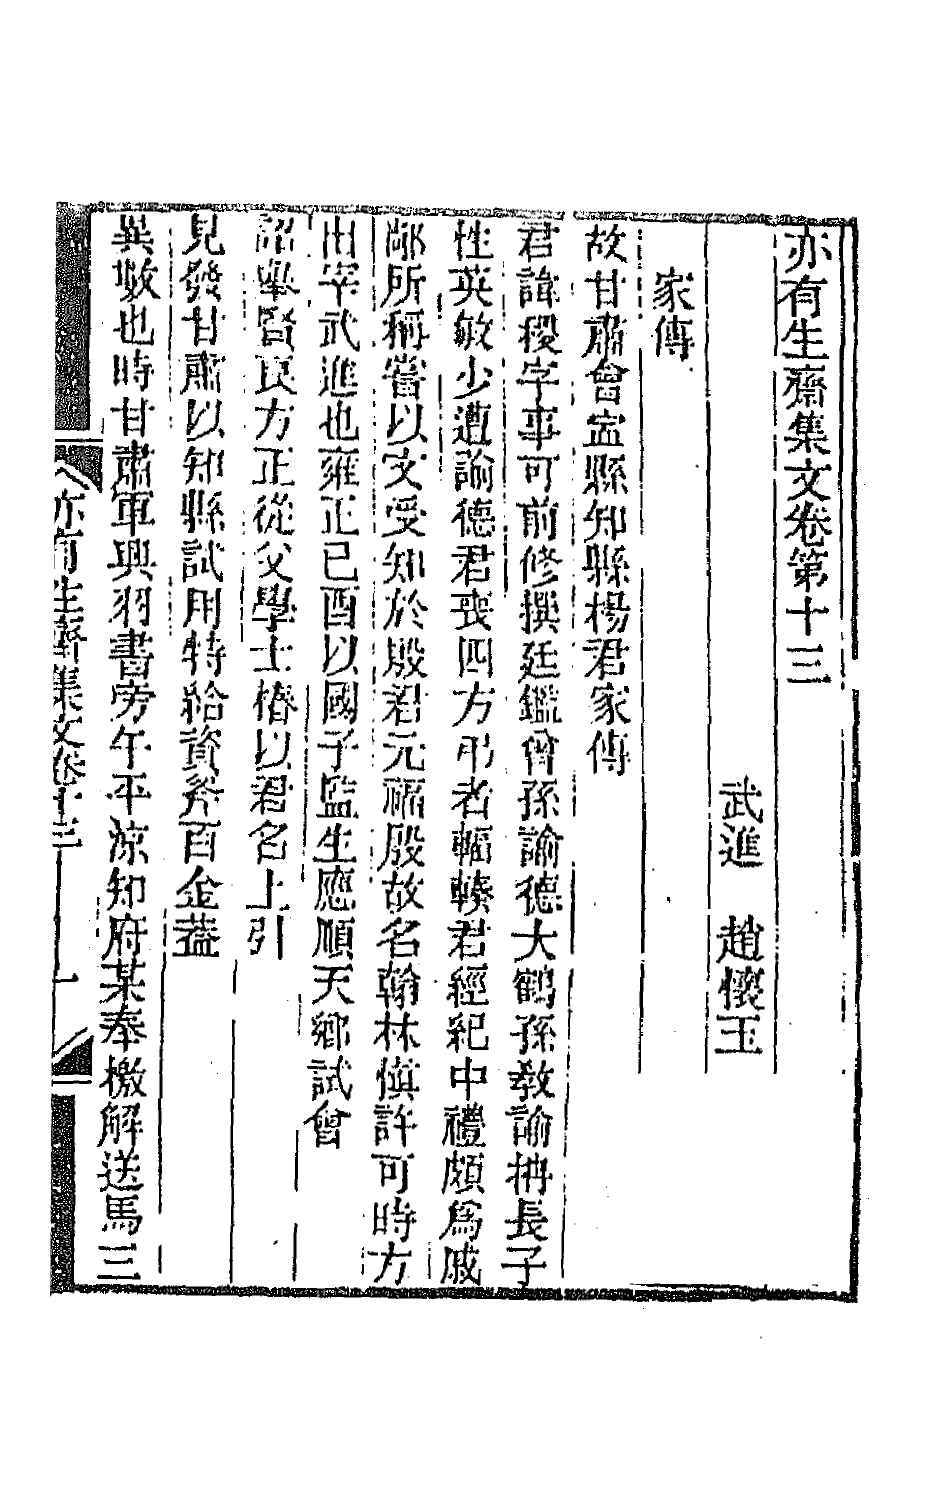 亦有生齋集文卷第十三
武進　趙懷玉
家傳
故甘肅會寍縣知縣楊君家傳
君諱稷字事可前修撰廷鑑曾孫諭德大鶴孫敎諭長子
性英敏少遭諭德君喪四方弔者輻輳君經紀中禮頗爲戚
鄰所稱嘗以文受知於殷君元福殷故名翰林愼許可時方
出宰武進也雍正己酉以國子監生應順天鄉試會
詔舉賢良方正從父學士椿以君名上引
見發甘肅以知縣試用特給資斧百金葢
異數也時甘肅軍興羽書旁午平涼知府某奉檄解送馬三
亦有生齋集文卷十三　一